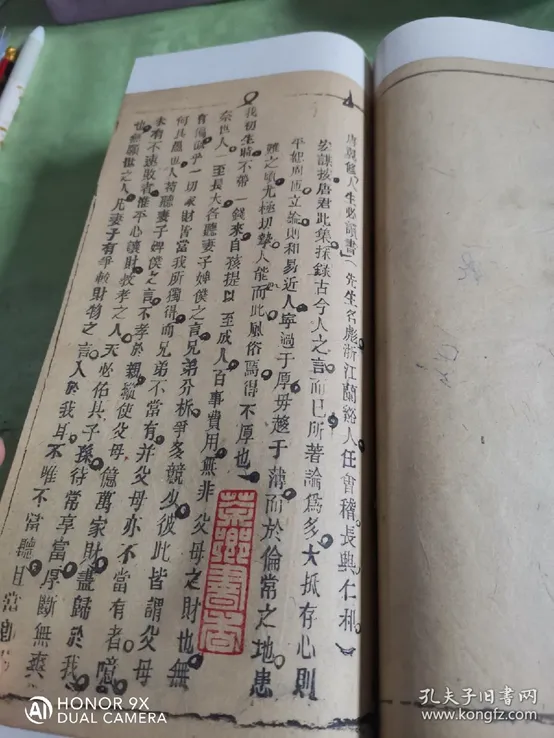 唐翼修人生必讀書(先生名彪浙江蘭谿人任會稽長興仁和)
教諭按唐君此集採錄古今人之言而巳所著論爲多大抵存心則
平恕周匝立論則和易近人寧過于厚毋趨于薄而於倫常之地患
難之頃尤極切摯人能而此風俗焉得不厚也
我初生時不帶一錢來自孩提以至成人百事費用無非父母之財也無
奈世人一至長大各聽妻子婢僕之言兄弟分析爭多競少彼此皆謂父母
有偏試乎一切家財皆當我所獨得而兄弟不當有并父母亦不當有者噫
何其愚也人苟聽妻子婢僕之言不孝於親縱使父母億萬家財盡歸於我
未有不速敗者誰平心讓財教孝之人天必佑其子孫待常享富厚斷無爽
也無願世之人凡妻子有爭較財物之言入於我耳不唯不當聽且當
茶鄉書屋
HONOR 9X
AI DUAL CAMERA
孔夫子旧書网
www.kongfz.com